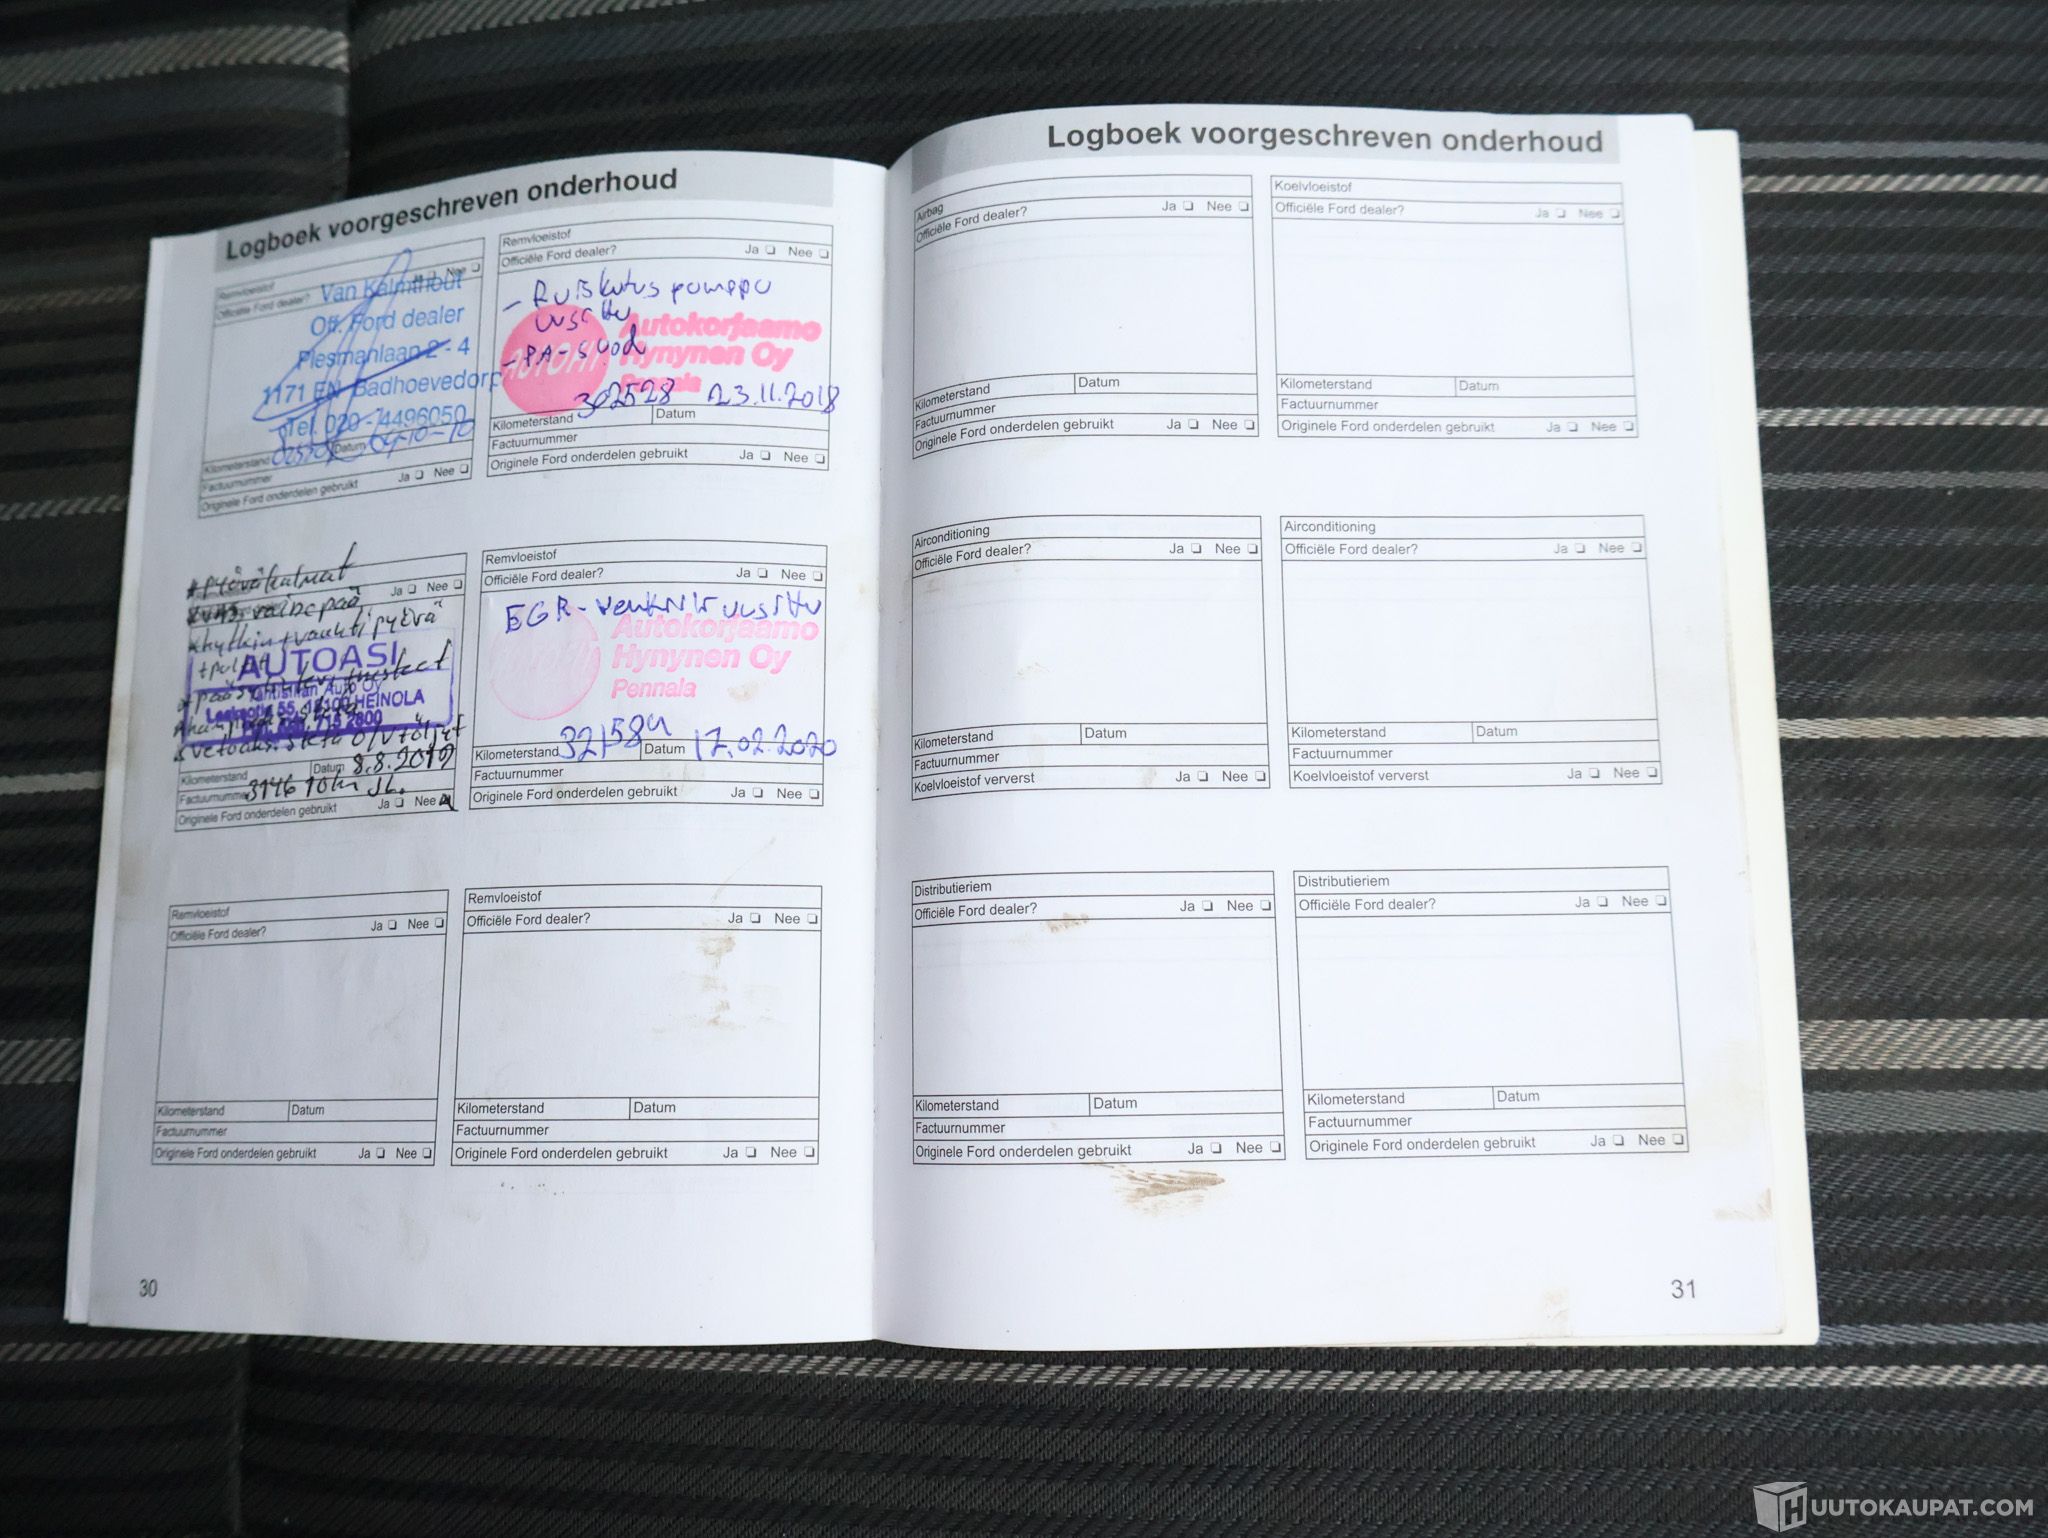 Logboek voorgeschreven onderhoud
Remvloeistof
Officiële Ford dealer? Nee
Van Kalmthout
Off. Ford dealer
Plesmanlaan 2 - 4
1171 EN Badhoevedorp
Tel. 020 - 4496050
Kilometerstand Datum 04-10-10
Factuurnummer Ja Nee
Originele Ford onderdelen gebruikt
Remvloeistof
Officiële Ford dealer? Ja Nee
- Ruiskutus pumppu
uusittu
- PA-suod
AUTOASI
Autokorjaamo
Hynynen Oy
Pennala
302528 23.11.2018
Kilometerstand Datum
Factuurnummer
Originele Ford onderdelen gebruikt Ja Nee
* Pyöränkulmat
Ja Nee
raidepää
* kytkin + vauhtipyörä
AUTOASI
Auto Oy
55, 18100 HEINOLA
715 2800
Kilometerstand Datum 8.8.2019
Factuurnummer 314610km
Originele Ford onderdelen gebruikt Ja Nee
Remvloeistof
Officiële Ford dealer? Ja Nee
EGR-venttiili uusittu
Autokorjaamo
Hynynen Oy
Pennala
Kilometerstand 321584 Datum 17.02.2020
Factuurnummer
Originele Ford onderdelen gebruikt Ja Nee
Remvloeistof
Officiële Ford dealer? Ja Nee
Kilometerstand Datum
Factuurnummer
Originele Ford onderdelen gebruikt Ja Nee
Remvloeistof
Officiële Ford dealer? Ja Nee
Kilometerstand Datum
Factuurnummer
Originele Ford onderdelen gebruikt Ja Nee
30
Logboek voorgeschreven onderhoud
Airbag
Officiële Ford dealer? Ja Nee
Kilometerstand Datum
Factuurnummer
Originele Ford onderdelen gebruikt Ja Nee
Koelvloeistof
Officiële Ford dealer? Ja Nee
Kilometerstand Datum
Factuurnummer
Originele Ford onderdelen gebruikt Ja Nee
Airconditioning
Officiële Ford dealer? Ja Nee
Kilometerstand Datum
Factuurnummer
Koelvloeistof ververst Ja Nee
Airconditioning
Officiële Ford dealer? Ja Nee
Kilometerstand Datum
Factuurnummer
Koelvloeistof ververst Ja Nee
Distributieriem
Officiële Ford dealer? Ja Nee
Kilometerstand Datum
Factuurnummer
Originele Ford onderdelen gebruikt Ja Nee
Distributieriem
Officiële Ford dealer? Ja Nee
Kilometerstand Datum
Factuurnummer
Originele Ford onderdelen gebruikt Ja Nee
31
HUUTOKAUPAT.COM